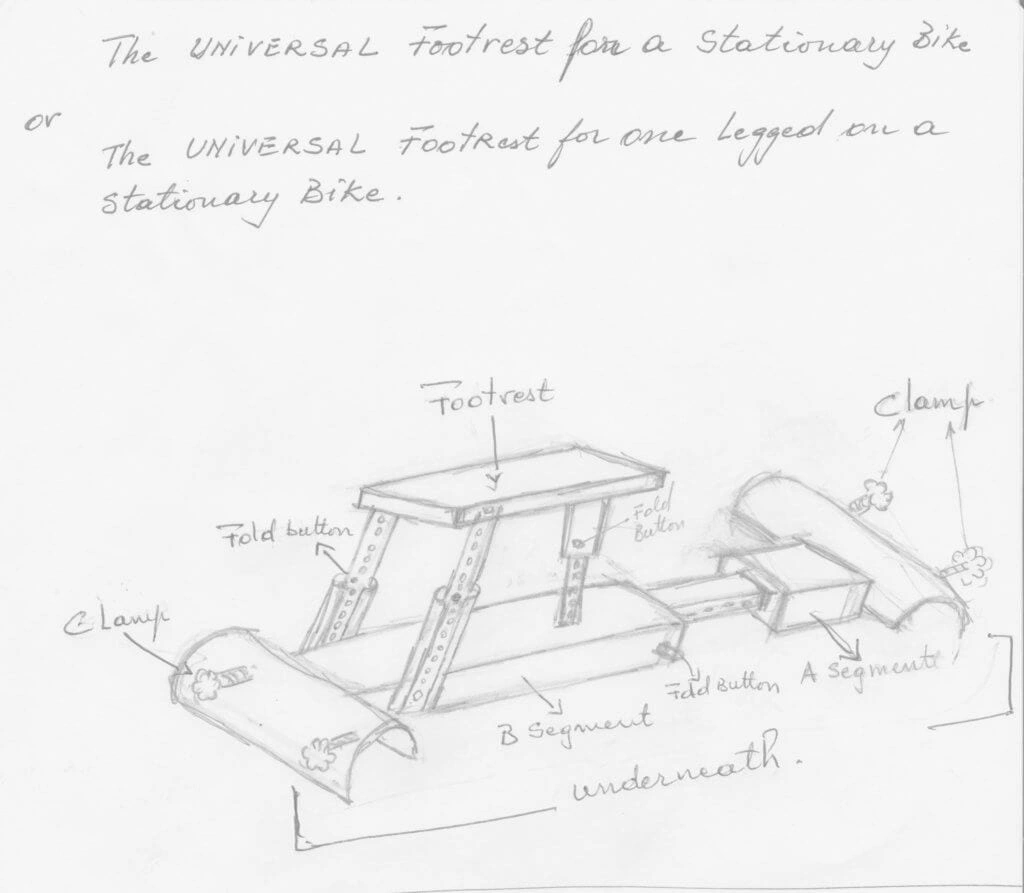 The UNIVERSAL Footrest for a Stationary Bike
or
The UNIVERSAL FootRest for one Legged on a
Stationary Bike.
Footrest
Clamp
Fold button
Fold
Button
Clamp
A Segment
Fold Button
B Segment
underneath.